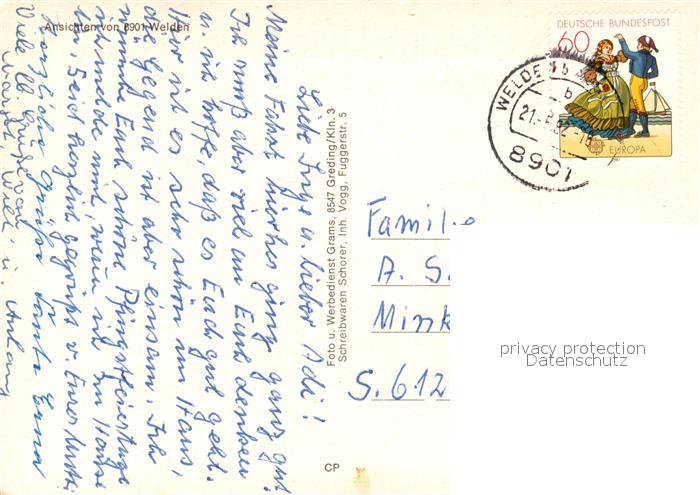 Ansichten von 8901 Welden
DEUTSCHE BUNDESPOST
60
EUROPA
WELDE
b
21.
8901
Liebe Inge u. lieber Adi!
Meine Fahrt hierher ging ganz gut
Ich muß aber viel an Euch denken
u. ich hoffe, daß es Euch gut geht.
Hier ist es sehr schön im Haus,
die Gegend ist aber einsam. Ich
wünsche Euch schöne Pfingstfeiertage
ich melde mich, wenn ich zu Hause
bin. Seid herzlich gegrüßt v. Eurer Mutti.
Herzliche Grüße Tante Erna
Viele Grüße von
Willi u. Anhang
Foto u. Werbedienst Grams, 8547 Greding/Kln. 3
Schreibwaren Schorer, Inh. Vogg, Fuggerstr. 5
Familie
A. S.
Mink
S. 612
privacy protection
Datenschutz
CP